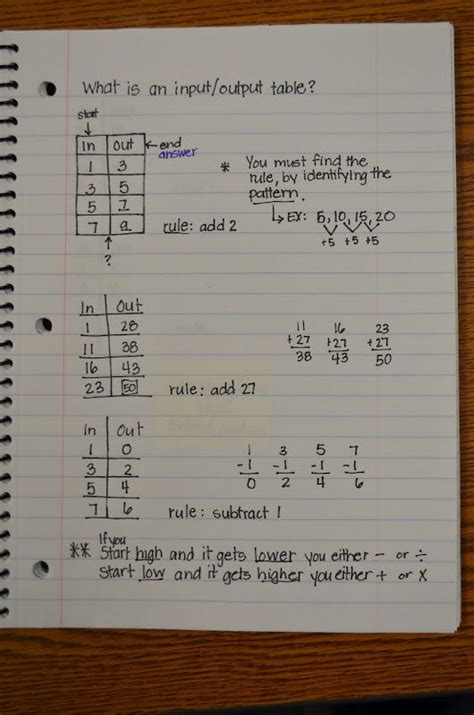 What is an input/output table?
start
In Out ←end
answer
1 3
3 5
5 7
7 9
rule: add 2
?
* You must find the
rule, by identifying the
pattern.
↳ EX: 5, 10, 15, 20
+5 +5 +5
In Out
1 28
11 38
16 43
23 50
rule: add 27
11 16 23
+27 +27 +27
38 43 50
In Out
1 0
3 2
5 4
7 6
rule: subtract 1
1 3 5 7
-1 -1 -1 -1
0 2 4 6
If you
** Start high and it gets lower you either - or ÷
Start low and it gets higher you either + or X